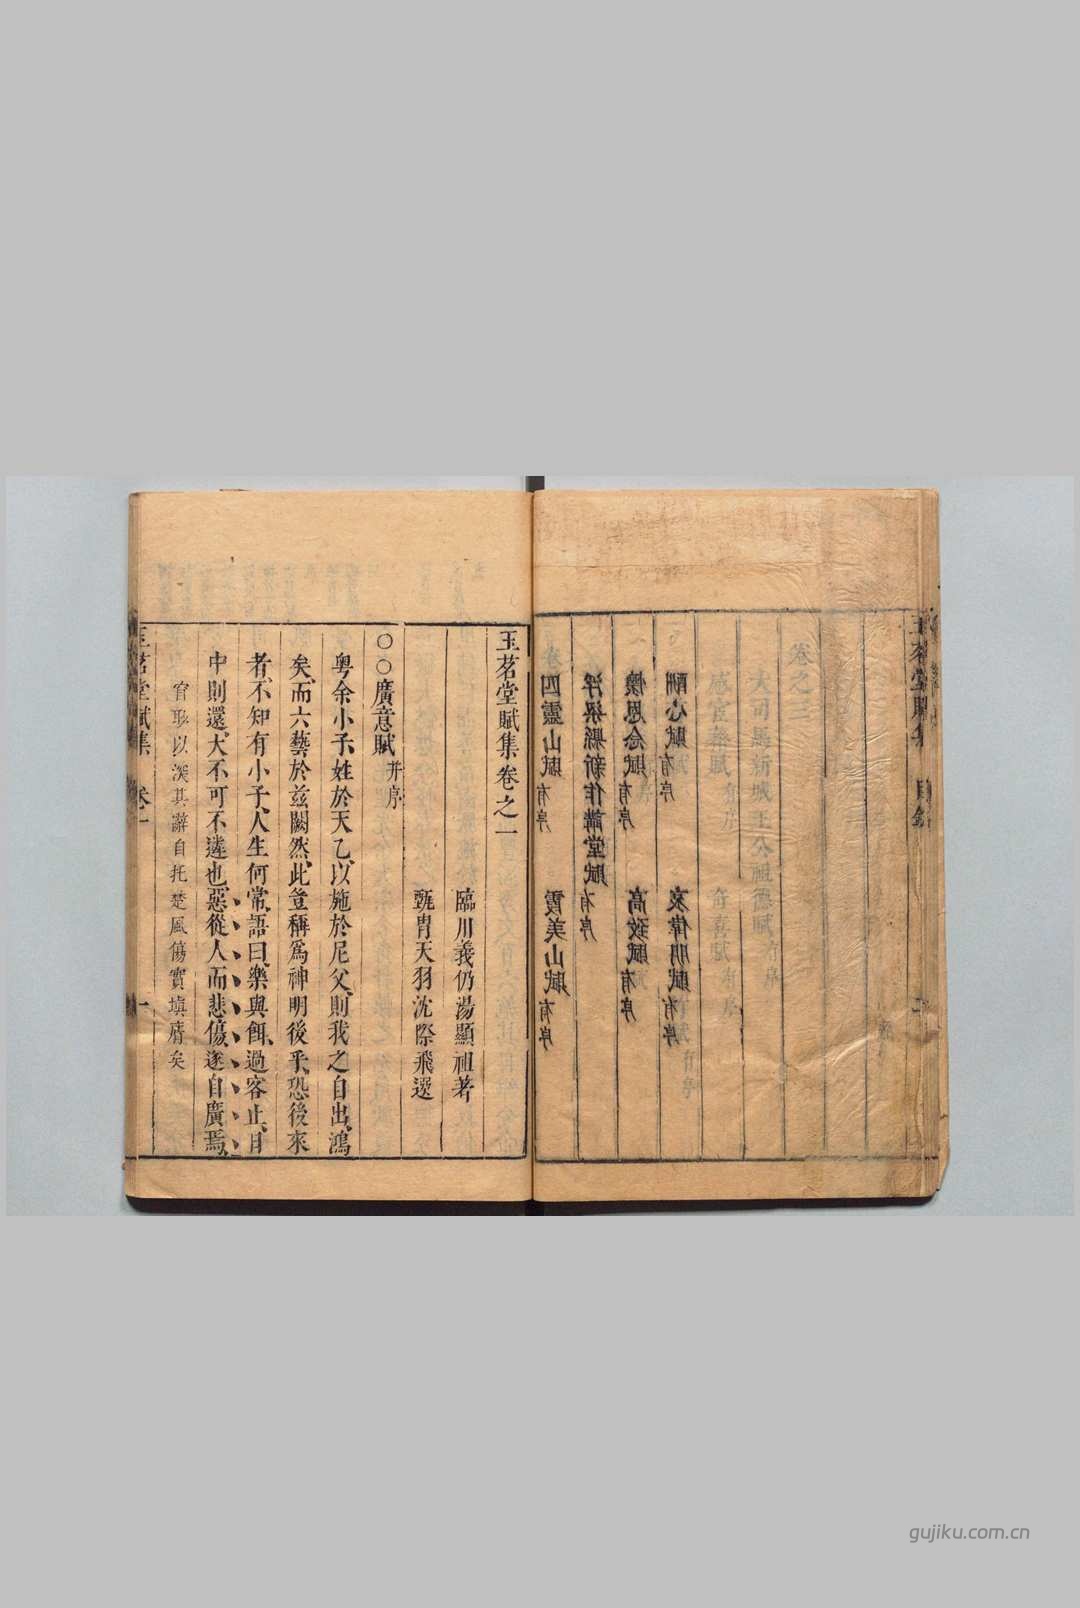 卷之三
大司馬新城王公祖德賦有序
感宦籍賦有序 奇喜賦有序
酬心賦有序 哀偉朋賦有序
懷恩念賦有序 高致賦有序
浮梁縣新作講堂賦有序
四靈山賦有序 霞美山賦有序
玉茗堂賦集 目錄 二
玉茗堂賦集卷之一
臨川義仍湯顯祖著
甄胄天羽沈際飛選
○○廣意賦并序
粤余小子、姓於天乙、以施於尼父、則我之自出、鴻
矣、而六藝於兹闕然、此豈稱爲神明後乎、恐後來
者、不知有小子、人生何常、語曰、樂與餌、過客止、目
中則還、大不可不達也、惡從人而悲傷、遂自廣焉、
官取以淡其辭自托楚風傷實填膺矣
玉茗堂賦集 卷一 一
gujiku.com.cn